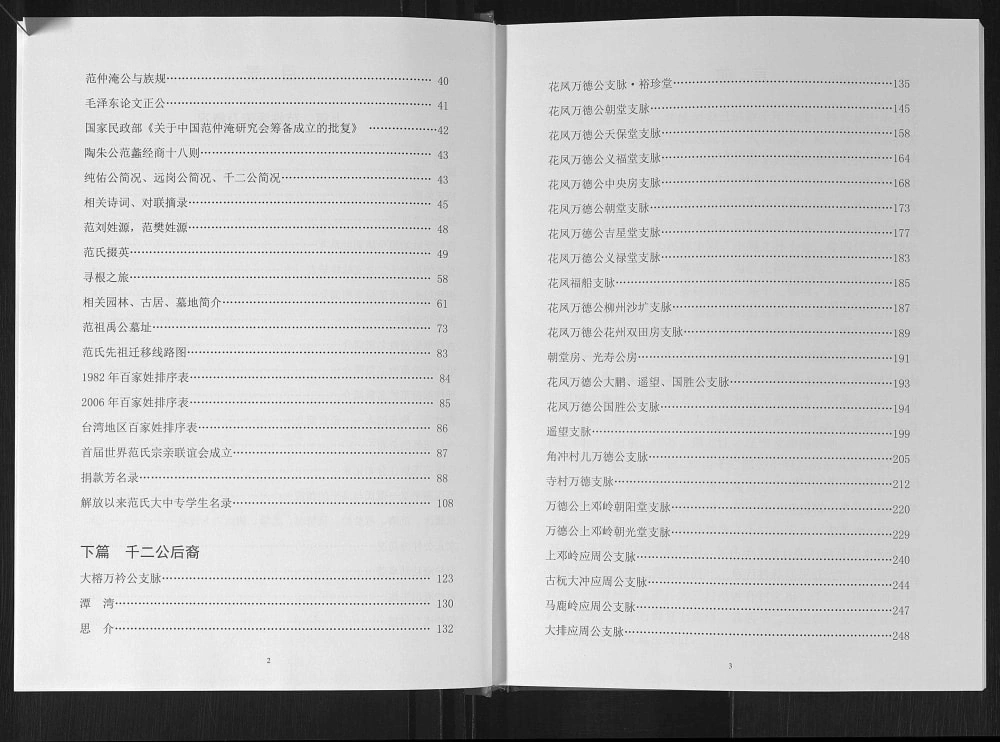 范仲淹公与族规…………………………………… 40
毛泽东论文正公…………………………………… 41
国家民政部《关于中国范仲淹研究会筹备成立的批复》 ……………42
陶朱公范蠡经商十八则…………………………………… 43
纯佑公简况、远岗公简况、千二公简况…………………………………… 43
相关诗词、对联摘录…………………………………… 45
范刘姓源，范樊姓源…………………………………… 48
范氏掇英…………………………………… 49
寻根之旅…………………………………… 58
相关园林、古居、墓地简介…………………………………… 61
范祖禹公墓址…………………………………… 73
范氏先祖迁移线路图…………………………………… 83
1982 年百家姓排序表…………………………………… 84
2006 年百家姓排序表…………………………………… 85
台湾地区百家姓排序表…………………………………… 86
首届世界范氏宗亲联谊会成立…………………………………… 87
捐款芳名录…………………………………… 88
解放以来范氏大中专学生名录…………………………………… 108
下篇 千二公后裔
大榕万衿公支脉…………………………………… 123
潭 湾…………………………………… 130
思 介…………………………………… 132
2
花凤万德公支脉·裕珍堂……………………………135
花凤万德公朝堂支脉……………………………145
花凤万德公天保堂支脉……………………………158
花凤万德公义福堂支脉……………………………164
花凤万德公中央房支脉……………………………168
花凤万德公朝堂支脉……………………………173
花凤万德公吉星堂支脉……………………………177
花凤万德公义禄堂支脉……………………………183
花凤福船支脉……………………………185
花凤万德公柳州沙圹支脉……………………………187
花凤万德公花州双田房支脉……………………………189
朝堂房、光寿公房……………………………191
花凤万德公大鹏、遥望、国胜公支脉……………………………193
花凤万德公国胜公支脉……………………………194
遥望支脉……………………………199
角冲村儿万德公支脉……………………………205
寺村万德支脉……………………………212
万德公上邓岭朝阳堂支脉……………………………220
万德公上邓岭朝光堂支脉……………………………229
上邓岭应周公支脉……………………………240
古杬大冲应周公支脉……………………………244
马鹿岭应周公支脉……………………………247
大排应周公支脉……………………………248
3